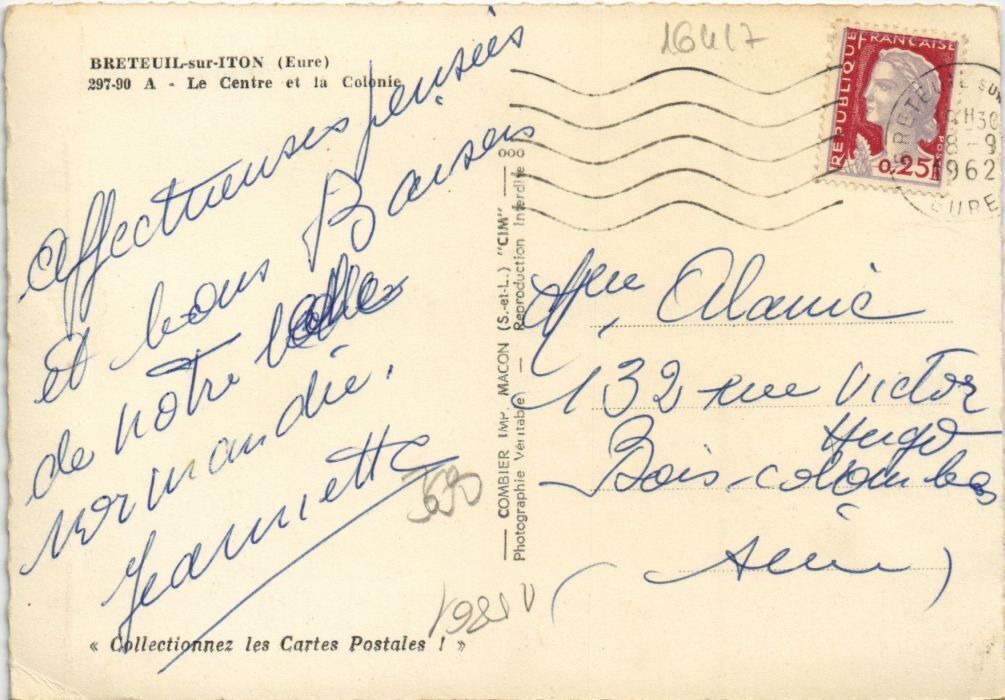 BRETEUIL-sur-ITON (Eure)
297-90 A - Le Centre et la Colonie
16417
RÉPUBLIQUE FRANCAISE
0,25F
BRETEUIL SUR
H30
8-9
1962
EURE
Affectueuses pensées
et bons Baisers
de notre belle
normandie.
Jeannette
COMBIER IMP. MACON (S.-et-L.) "CIM"
Photographie Véritable — Reproduction Interdite
000
Mme Alanic
132 rue Victor
Hugo
Bois-colombes
(Seine)
« Collectionnez les Cartes Postales ! »